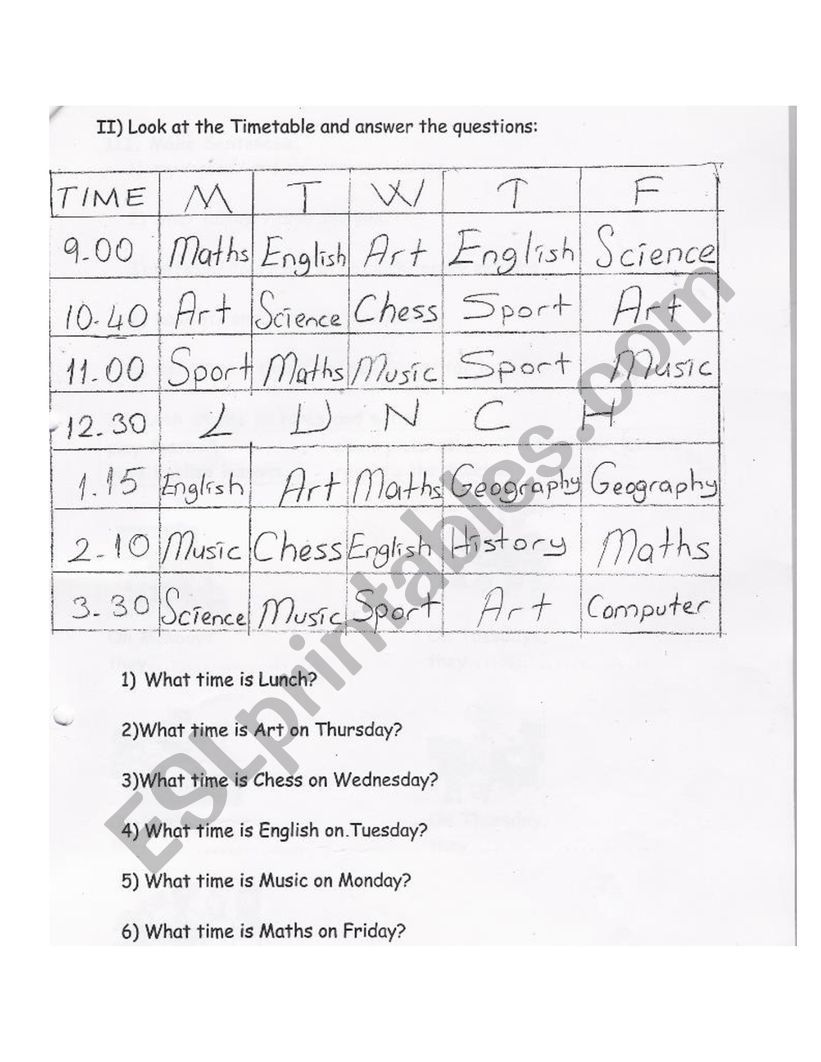 II) Look at the Timetable and answer the questions:
TIME M T W T F
9.00 Maths English Art English Science
10.40 Art Science Chess Sport Art
11.00 Sport Maths Music Sport Music
12.30 L U N C H
1.15 English Art Maths Geography Geography
2.10 Music Chess English History Maths
3.30 Science Music Sport Art Computer
1) What time is Lunch?
2)What time is Art on Thursday?
3)What time is Chess on Wednesday?
4) What time is English on.Tuesday?
5) What time is Music on Monday?
6) What time is Maths on Friday?
ESLprintables.com